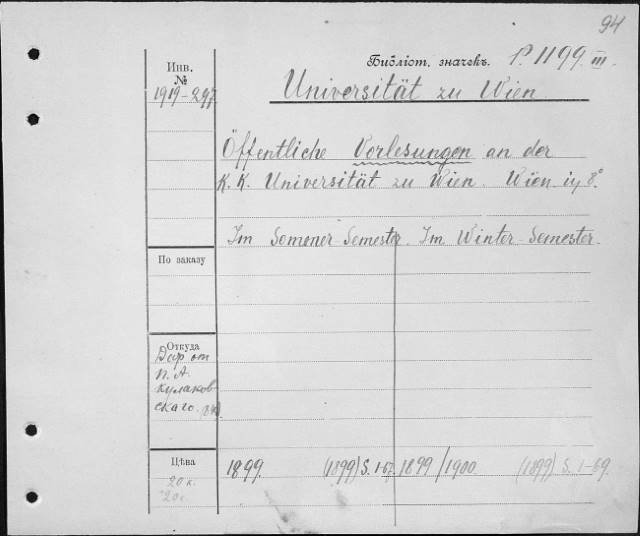 94
Инв.
№
1919-297
Библіот. значекъ. P. 1199 III.
Universität zu Wien
Öffentliche Vorlesungen an der
K.K. Universität zu Wien. Wien in 8°.
Im Sommer-Semester. Im Winter-Semester.
По заказу
Откуда
Дар от
П. А.
Кулаков
скаго.
Цѣва
20 к.
20 к.
1899. (1899) S. 1-67. 1899/1900 (1899) S. 1-69.